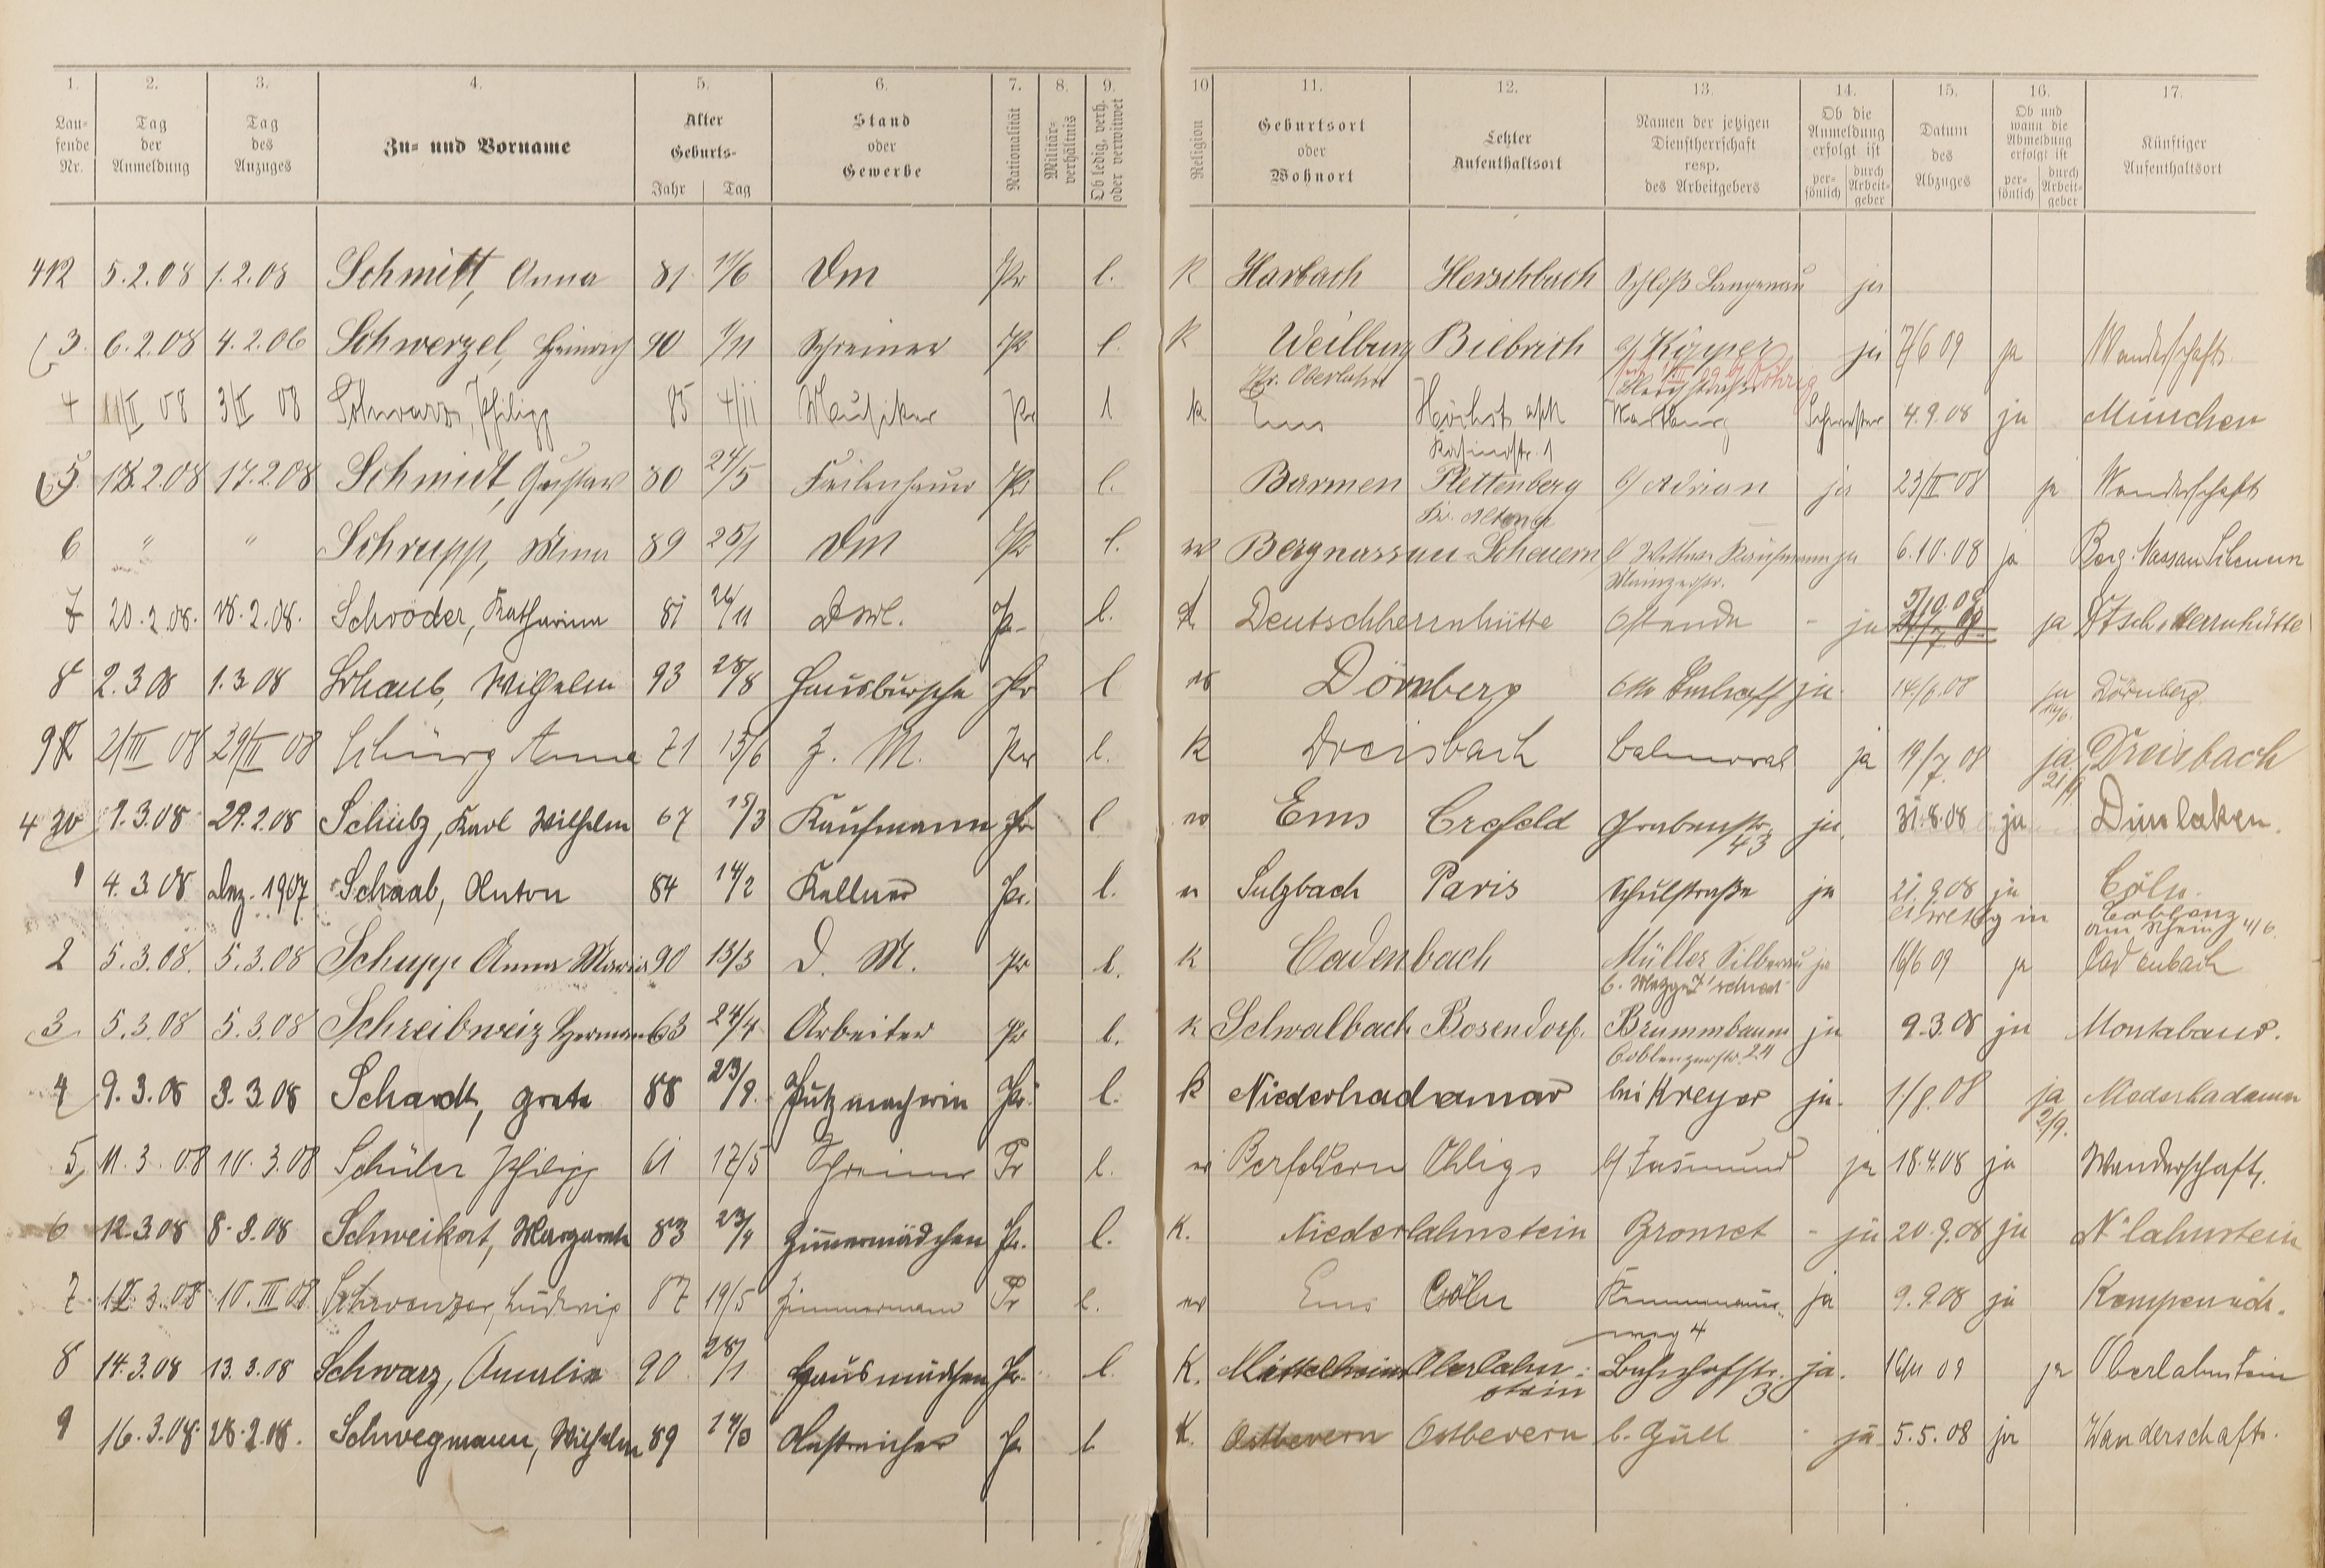 1. 2. 3. 4. 5. 6. 7. 8. 9. 10 11. 12. 13. 14. 15. 16. 17.
Lau-
fende
Nr.
Tag
der
Anmeldung
Tag
des
Anzuges
Zu- und Vorname
Alter
Geburts-
Jahr Tag
Stand
oder
Gewerbe
Nationalität
Militär-
verhältnis
Ob ledig, verh.
oder verwitwet
Religion
Geburtsort
oder
Wohnort
Letzter
Aufenthaltsort
Namen der jetzigen
Dienstherrschaft
resp.
des Arbeitgebers
Ob die
Anmeldung
erfolgt ist
per-
sönlich
durch
Arbeit-
geber
Datum
des
Abzuges
Ob und
wann die
Abmeldung
erfolgt ist
per-
sönlich
durch
Arbeit-
geber
Künftiger
Aufenthaltsort
412 5.2.08 1.2.08 Schmitt, Anna 81 11/6 Dm Pr l. K Harbach Herschbach Schloß Langenau ja
3. 6.2.08 4.2.06 Schwerzel, Heinrich 90 1/11 Schreiner Pr l. K Weilburg Biebrich b/ Küpper ja 7/6 09 ja Wanderschaft.
Kr. Oberlahn
4 11/II 08 3/II 08 Schwarz, Philipp 85 4/11 Musiker Pr l k Ems Höchst a/M Wartburg Schwester 4.9.08 ja München
Kasinostr. 1
5. 18.2.08 17.2.08 Schmidt, Gustav 80 24/5 Feilenhauer Pr l. Barmen Plettenberg b/ Adrian ja 23/II 08 ja Wanderschaft
Kr. Altena
6 " " Schrupp, Mina 89 25/1 Dm Pr l. ev Bergnassau-Scheuern b/ Wittwe Kaufmann ja 6.10.08 ja Berg. Nassau Scheuern
Mainzerstr.
7 20.2.08. 18.2.08. Schröder, Katharina 81 26/11 Dml. Pr. l. k Deutschherrnhütte Ostende - ja 5/10.08 ja Dtsch. Herrnhütte
8 2.3 08 1.3 08 Schaub, Wilhelm 93 28/8 Hausbursche Pr l ev Dörnberg ja. 14/6.08 ja Dörnberg.
9 2/III 08 29/II 08 Schürg Anna 71 15/6 Z. M. Pr l. K Dreisbach Balmoral ja 19/7. 08 ja Dreisbach
21/7
430 1.3.08 29.2.08 Schulz, Karl Wilhelm 67 15/3 Kaufmann Pr l ev Ems Crefeld Grabenstr. 43 ja. 31.8.08 ja Dinslaken.
1 4.3.08 Dez. 1907 Schaab, Anton 84 14/2 Kellner Pr. l. ev Sulzbach Paris Schulstraße ja 21.9.08 ja Cöln.
Coblenz
am Rhein 4/6.
2 5.3.08. 5.3.08 Schupp Anna Maria 90 13/3 D. M. Pr l. K Cadenbach Müller Silberau ja 16/6 09 ja Cadenbach
3 5.3.08 5.3.08 Schreibweiz Hermann 63 24/4 Arbeiter Pr l. K Schwalbach Bosendorf. Brummbaum ja 9.3.08 ja Montabaur.
Coblenzerstr. 24
4 9.3.08 3.3.08 Schardt, Grete 88 23/9. Putzmacherin Pr. l. k Niederhadamar bei Kreyer ja. 1/9.08 ja Niederhadamar
2/9.
5 11.3.08 10.3.08 Schüler Philipp 61 17/5 Schreiner Pr l. ev Ohligs b/ Zasmund ja 18.4.08 ja Wanderschaft.
6 12.3.08 8.3.08 Schweikert, Margarete 83 23/4 Zimmermädchen Pr. l. K. Niederlahnstein Bromet - ja 20.9.08 ja N'lahnstein
7. 12.3.08 10.III 08 Schwenzer, Ludwig 87 19/5 Zimmermann Pr l. ev Ems Cöln ja 9.9.08 ja
weg 4
8 14.3.08 13.3.08 Schwarz, Amalie 90 28/1 Hausmädchen Pr. l. K. Mittelheim Oberlahn-
stein Bahnhofstr. 3 ja. 16/11 09 ja Oberlahnstein
9 16.3.08. 28.2.08. Schwegmann, Wilhelm 89 14/3 Anstreicher Pr l K. Ostbevern Ostbevern b. Güll - ja 5.5.08 ja Wanderschaft.